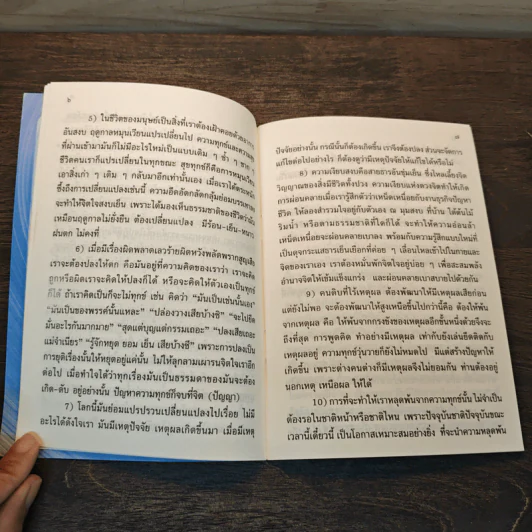 ๕) ในชีวิตของมนุษย์เป็นสิ่งที่เราต้องเฝ้าคอยด้วยอาการ
อันสงบ ฤดูกาลหมุนเวียนแปรเปลี่ยนไป ความทุกข์และความสุข
ที่ผ่านเข้ามามันก็ไม่มีอะไรใหม่เป็นแบบเดิม ๆ ซ้ำ ๆ ซาก ๆ
ชีวิตคนเราก็แปรเปลี่ยนในทุกขณะ สุขทุกข์ก็คือการหมุนเวียน
เอาสิ่งเก่า ๆ เดิม ๆ กลับมาอีกเท่านั้นเอง เมื่อเราได้ตระหนัก
ซึ้งถึงการเปลี่ยนแปลงเช่นนี้ ความอึดอัดกลัดกลุ้มย่อมบรรเทา
และทำให้จิตใจสงบเย็น เพราะได้มองที่ธรรมชาติของชีวิตว่ามัน
เหมือนฤดูกาลไม่ยั่งยืน ต้องเปลี่ยนแปลง มีร้อน-เย็น-หนาว
ฝนตก ไม่คงที่
๖) เมื่อมีเรื่องผิดพลาดเลวร้ายผิดหวังพลัดพรากสูญเสีย
เราจะต้องปลงให้ตก คือมันอยู่ที่ความคิดของเราว่า เราจะคิด
ถูกหรือผิดเราจะคิดให้ปลงก็ได้ หรือจะคิดให้ตัวเองเป็นทุกข์
ก็ได้ ถ้าเราคิดเป็นก็จะไม่ทุกข์ เช่น คิดว่า "มันเป็นเช่นนั้นเอง"
"มันเป็นของพรรค์นั้นแหละ" "ปล่องวางเสียบ้างซิ" "จะไปยึด
มั่นอะไรกันมากมาย" "สุดแต่บุญแต่กรรมเถอะ" "ปลงเสียเถอะ
แม่จำเนียร" "รู้จักหยุด ยอม เย็น เสียบ้างซี" เพราะการปลงเป็น
การยุติเรื่องนั้นให้หยุดอยู่แค่นั้น ไม่ให้ลุกลามเผารนจิตใจเราอีก
ต่อไป เมื่อทำใจได้ว่าทุกเรื่องมันเป็นธรรมดาของมันจะต้อง
เกิด-ดับ อยู่อย่างนั้น ปัญหาความทุกข์ก็จบที่จิต (ปัญญา)
๗) โลกนี้มันย่อมแปรปรวนเปลี่ยนแปลงไปเรื่อย ไม่มี
อะไรได้ดั่งใจเรา มันมีเหตุปัจจัย เหตุผลเกิดขึ้นมา เมื่อมีเหตุ
ปัจจัยอย่างนั้น กรณีนั้นก็ต้องเกิดขึ้น เราจึงต้องปลง ส่วนจะจัดการ
แก้ไขต่อไปอย่างไร ก็ต้องดูว่ามีเหตุปัจจัยให้แก้ไขได้หรือไม่
๘) ความเงียบสงบคือสายธารอันชุ่มเย็น ซึ่งไหลเลี้ยงจิต
วิญญาณของสิ่งมีชีวิตทั้งปวง ความเงียบแห่งดวงจิตทำให้เกิด
การผ่อนคลายเมื่อเรารู้สึกตัวว่าเหน็ดเหนื่อยกับงานธุรกิจปัญหา
ชีวิต ให้ลองสำรวมใจอยู่กับตัวเอง ณ มุมสงบ ที่บ้าน ใต้ต้นไม้
ริมน้ำ หรือตามธรรมชาติที่ใดก็ได้ จะทำให้ความอ่อนล้า
เหน็ดเหนื่อยจะผ่อนคลายเบาลง พร้อมกับความรู้สึกแบบใหม่ที่
เป็นดุจกระแสธารเย็นเยือกที่ค่อย ๆ เลื่อนไหลเข้าไปในกายและ
จิตของเราเอง เราต้องหมั่นพักจิตใจอยู่บ่อย ๆ เพื่อสะสมพลัง
อำนาจจิตให้เข้มแข็งแกร่ง และผ่อนคลายเบาสบายไปด้วยกัน
๙) คนดิบที่ไร้เหตุผล จะต้องพัฒนาให้มีเหตุผลเสียก่อน
แต่ยังไม่พอ จะต้องพัฒนาให้สูงเหนือขึ้นไปกว่านี้คือ ต้องให้พ้น
จากเหตุผล คือ ให้พ้นจากกรงขังของเหตุผลอีกชั้นหนึ่งด้วยจึงจะ
ถึงที่สุด การพูดคิด ทำอย่างมีเหตุผล เท่ากับยังเล่นยืดติดกับ
เหตุผลอยู่ ความทุกข์วุ่นวายก็ยังไม่หมดไป มีแต่สร้างปัญหาให้
เกิดขึ้น เพราะต่างคนต่างก็มีเหตุผลจึงไม่ยอมกัน ท่านต้องอยู่
นอกเหตุ เหนือผล ให้ได้
๑๐) การที่จะทำให้เราหลุดพ้นจากความทุกข์นั้น ไม่จำเป็น
ต้องรอในชาติหน้าหรือชาติไหน เพราะปัจจุบันชาติปัจจุบันขณะ
เวลานี้เดี๋ยวนี้ เป็นโอกาสเหมาะสมอย่างยิ่ง ที่จะนำความหลุดพ้น